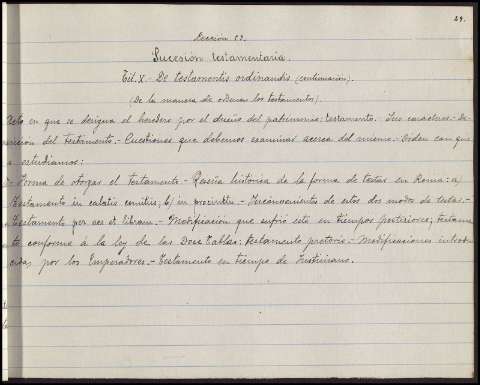 29.
Lección 53.
Sucesión testamentaria.
Tít. X.- De testamentis ordinandis (continuación).
(De la manera de ordenar los testamentos).
Acto en que se designa el heredero por el dueño del patrimonio: testamento.- Sus caracteres.-
del testamento.- Cuestiones que debemos examinar acerca del mismo.- Orden con que
estudiamos:
Forma de otorgar el testamento.- Reseña histórica de la forma de testar en Roma: a)
Testamento in calatis comitiis; b) in procinctu.- Inconvenientes de estos dos modos de testar.-
Testamento per aes et libram.- Modificación que sufrió este en tiempos posteriores; testamen
to conforme á la ley de las Doce Tablas; testamento pretorio.- Modificaciones introdu
cidas por los Emperadores.- Testamento en tiempo de Justiniano.